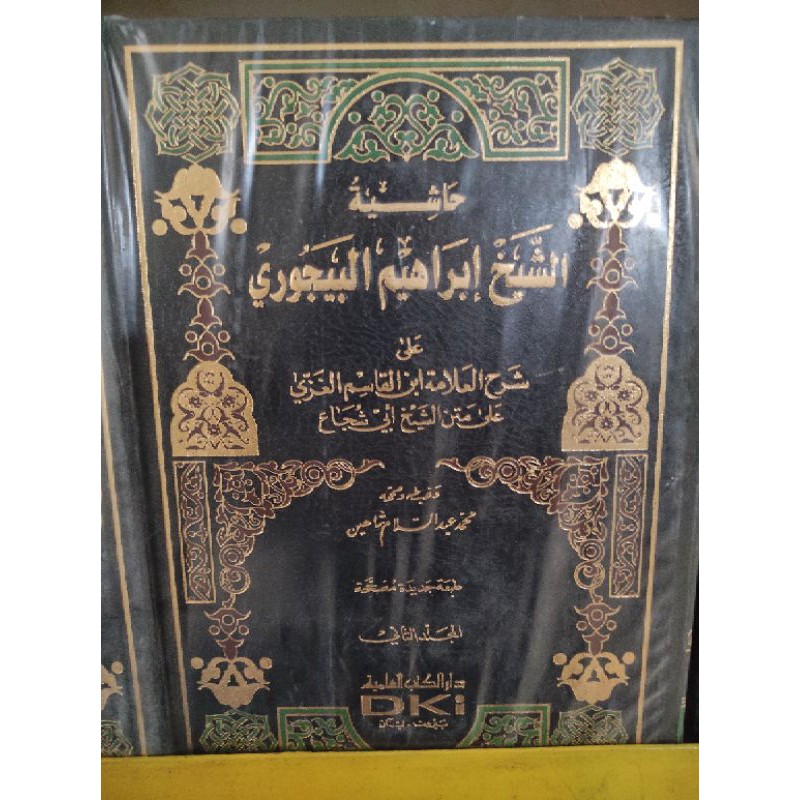 حَاشِيَةُ
الشَّيَخ إبرَاهيْم البَيجُوريْ
عَلى
شَرح العَلامَة ابن القَاسِم الغَزّي
عَلى مَتن الشَيخ أبي شُجَاع
ضبطه وصححه
محمد عبد السلام شاهين
طبعة جديدة مصححة
المجلد الثاني
دار الكتب العلمية
DKi
بيروت - لبنان